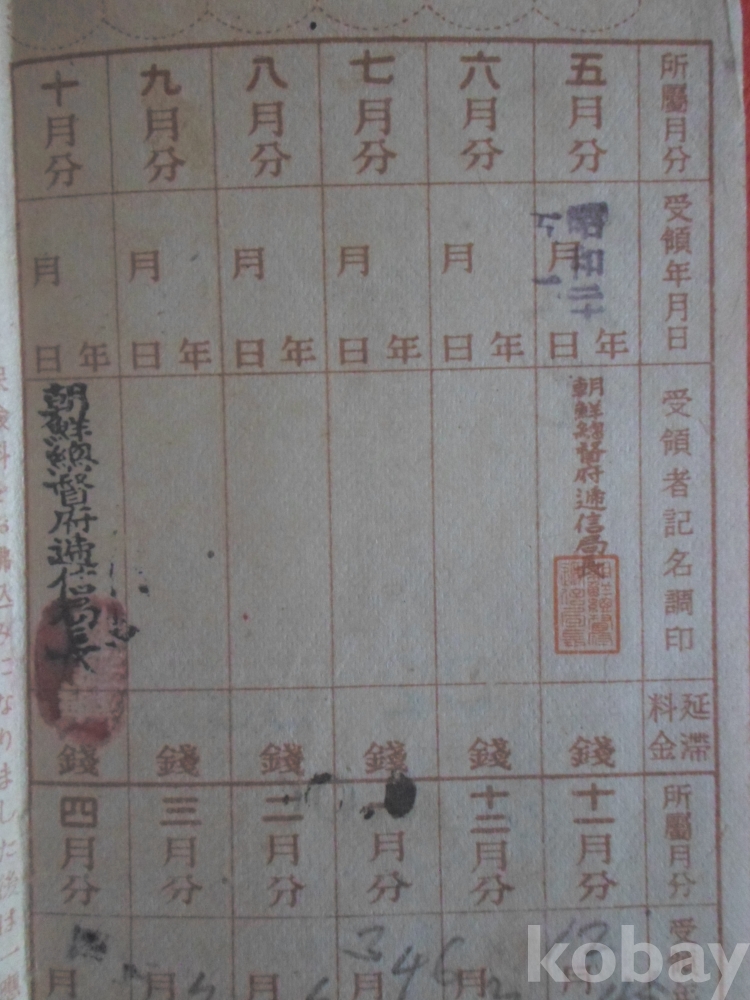 所屬月分
受領年月日
受領者記名調印
延滯料金
五月分
昭和二十
年月日
朝鮮總督府遞信局長
錢
六月分
年月日
錢
七月分
年月日
錢
八月分
年月日
錢
九月分
年月日
錢
十月分
月日
朝鮮總督府遞信局長
錢
所屬月分
受
十一月分
月
十二月分
月
月分
346
月
二月分
月
三月分
月
四月分
月
込みになりました後は一
kobay